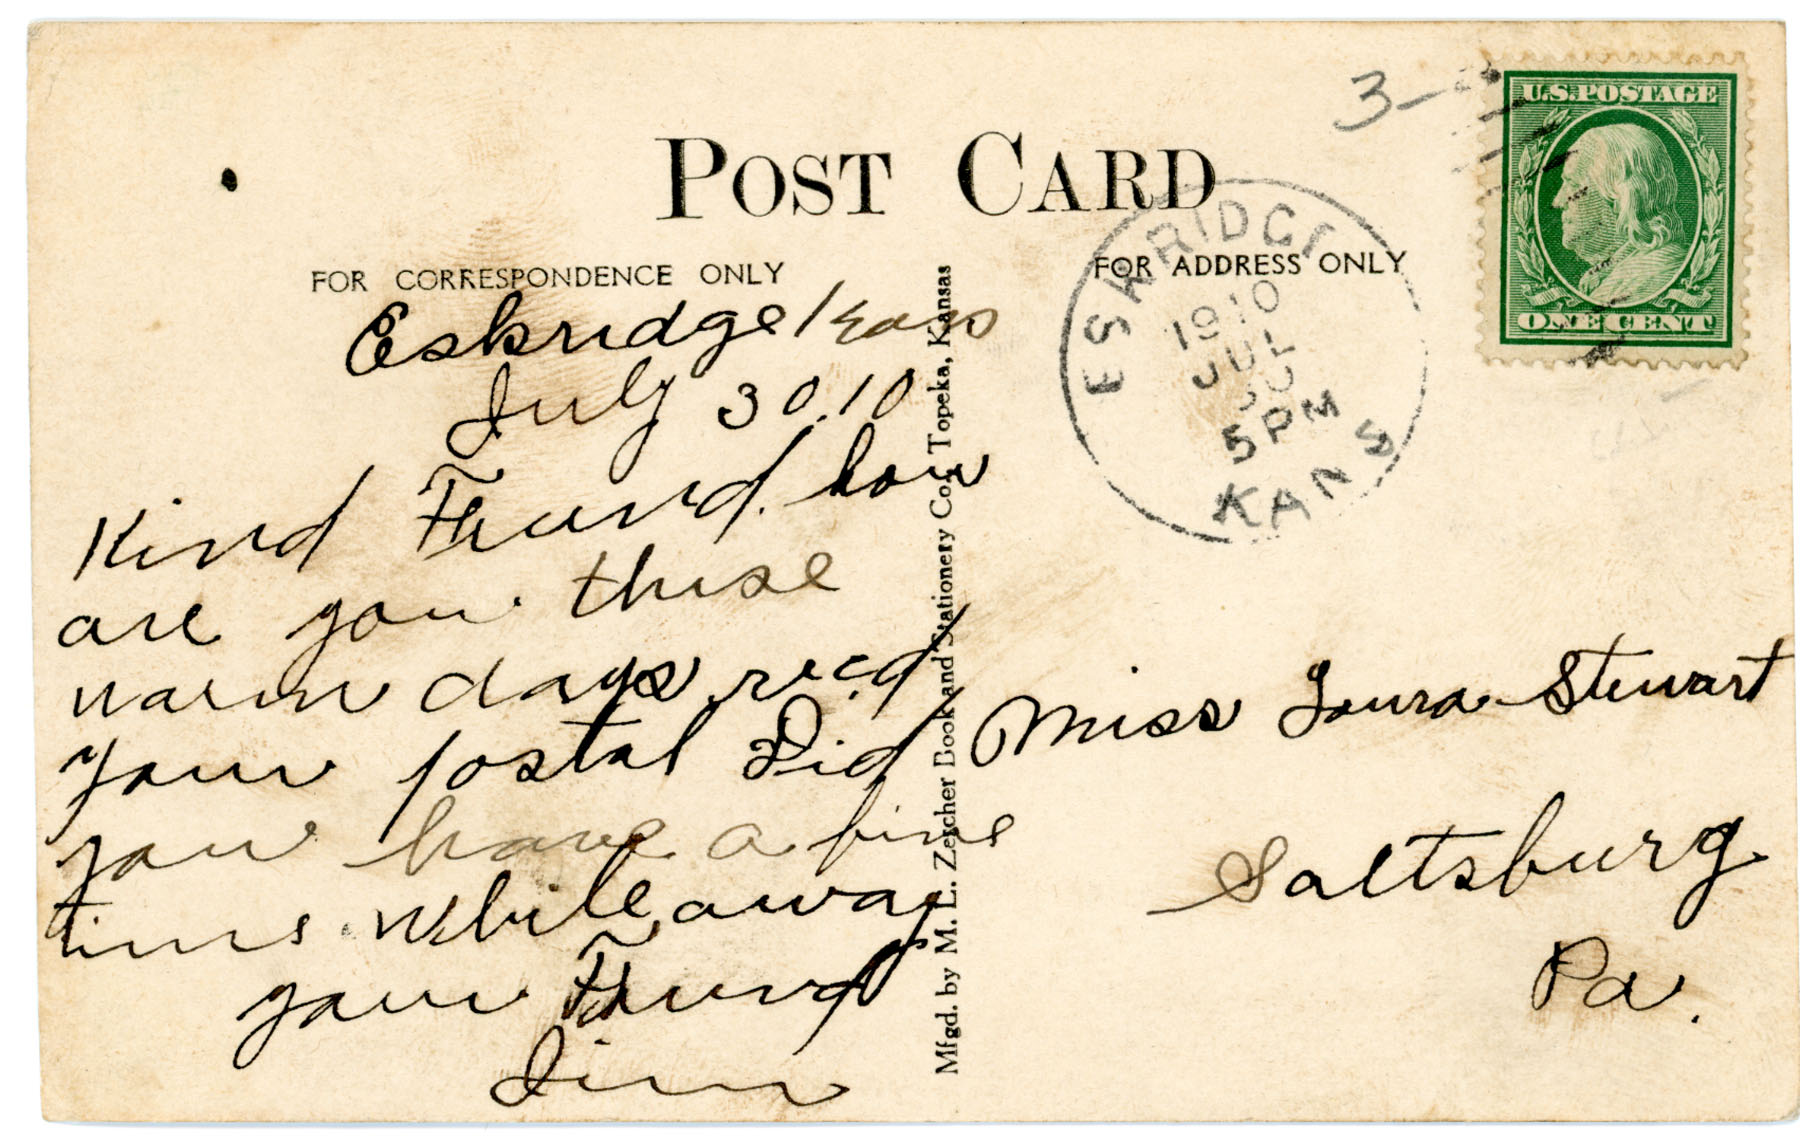 POST CARD
FOR CORRESPONDENCE ONLY
Eskridge Kans
July 30.10
Kind Friend. how
are you these
warm days recd
your postal Did
you have a fine
time while away
your Friend
Jim
Mfgd. by M. L. Zercher Book and Stationery Co., Topeka, Kansas
FOR ADDRESS ONLY
3-
U.S. POSTAGE
ONE CENT
ESKRIDGE
1910
JUL
30
5 PM
KANS
Miss Laura Stewart
Saltsburg
Pa.